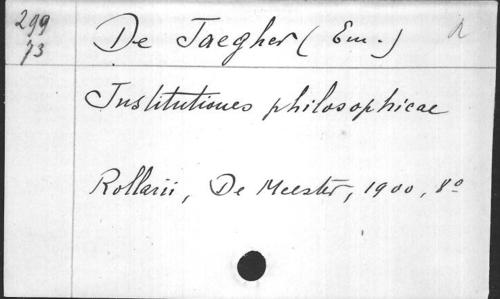 299 De Jaegher (Em.)
73
Institutiones philosophicae
Rollarii, De Meester, 1900, 8º